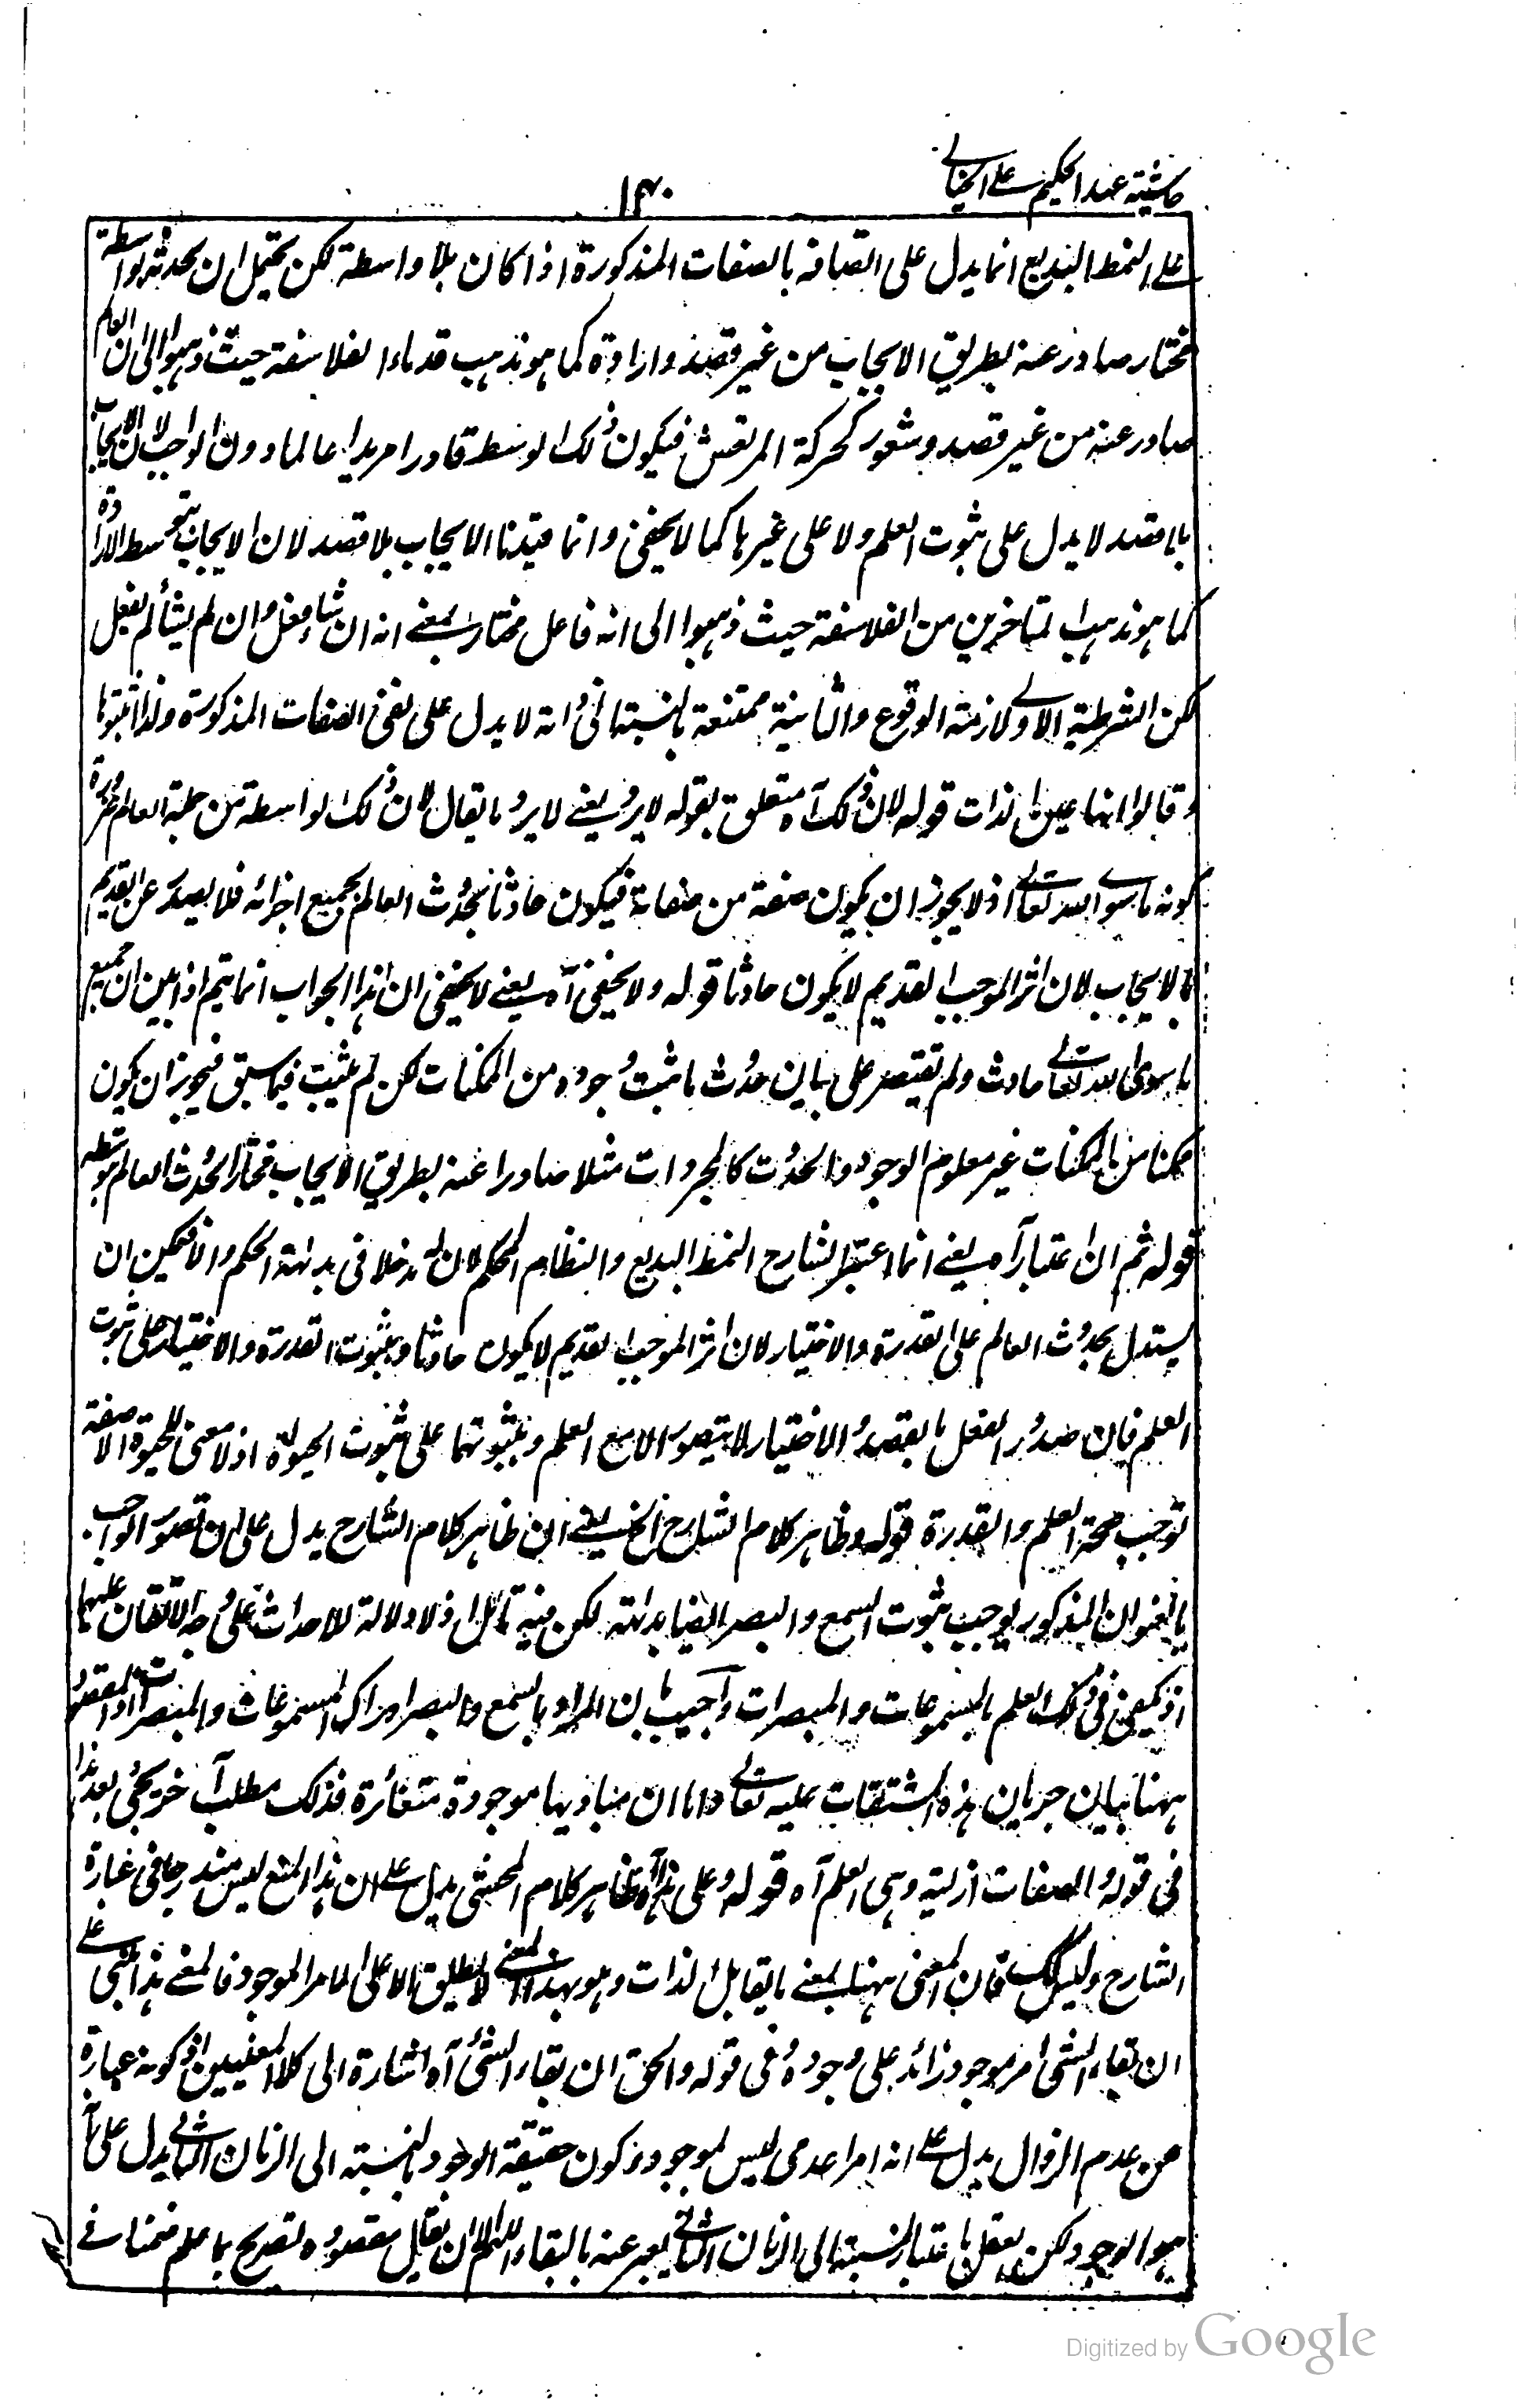 حاشية عبد الحكيم على الخيالي
١٤٠
على النمط البديع انما يدل على اتصافه بالصفات المذكورة اذا كان بلا واسطة لكن يحتمل ان يحدثه بواسطة
مختار صادر عنه بطريق الايجاب من غير قصد وارادة كما هو مذهب قدماء الفلاسفة حيث ذهبوا الى ان العالم
صادر عنه من غير قصد وشعور كحركة المرتعش فيكون ذلك الوسط قادرا مريدا عالما دون الواجب لان الايجاب
بلا قصد لا يدل على ثبوت العلم ولا على غيرها كما لا يخفى وانما قيدنا الايجاب بلا قصد لان الايجاب بتوسط الارادة
كما هو مذهب المتاخرين من الفلاسفة حيث ذهبوا الى انه فاعل مختار بمعنى انه ان شاء فعل وان لم يشأ لم يفعل
لكن الشرطية الاولى لازمة الوقوع والثانية ممتنعة بالنسبة الى ذاته لا يدل على نفى الصفات المذكورة ولذا اثبتوها
وقالوا انها عين الذات قوله لان ذلك آه متعلق بقوله لا يرد يعنى لا يرد ما يقال لان ذلك الواسطة من جملة العالم ضرورة
كونه ما سوى الله تعالى اذ لا يجوز ان يكون صفة من صفاته فيكون حادثا لحدوث العالم بجميع اجزائه فلا يصدر عن القديم
بالايجاب لان اثر الموجب القديم لا يكون حادثا قوله ولا يخفى آه يعنى لا يخفى ان هذا الجواب انما يتم اذا بين ان جميع
ما سوى الله تعالى حادث ولم تقتصر على بيان حدوث ما ثبت وجوده من الممكنات لكن لم يثبت فيما سبق فيجوز ان يكون
ممكنا من الممكنات غير معلوم الوجود والحدوث كالمجردات مثلا صادرا عنه بطريق الايجاب مختارا لحدوث العالم بتوسطه
قوله ثم ان اعتبار آه يعنى انما اعتبر الشارح النمط البديع والنظام المحكم لان له مدخلا فى بداهة الحكم والا فيمكن ان
يستدل بحدوث العالم على القدرة والاختيار لان اثر الموجب القديم لا يكون حادثا وبثبوت القدرة والاختيار على ثبوت
العلم فان صدور الفعل بالقصد والاختيار لا يتصور الا مع العلم وبثبوتهما على ثبوت الحيوة اذ لا معنى للحيوة الا صفة
توجب صحة العلم والقدرة قوله وظاهر كلام الشارح الخ يعنى ان ظاهر كلام الشارح يدل على ان تصور الواجب
بالعنوان المذكور يوجب ثبوت السمع والبصر ايضا بداهته لكن فيه تأمل اذ لا دلالة للاحداث على وجه الاتقان عليهما
اذ يكفى فى ذلك العلم بالمسموعات والمبصرات واجيب بان المراد بالسمع والبصر ادراك المسموعات والمبصرات اذ المقصود
ههنا بيان جريان هذه المشتقات عليه تعالى واما ان مباديها موجودة متغائرة فذلك مطلب آخر يجئ بعد هذا
فى قوله والصفات ازلية وهى العلم آه قوله وعلى هذا آه ظاهر كلام المحشى يدل على ان هذا المنع ليس مندرجا فى عبارة
الشارح وليس كذلك فان المعنى ههنا بمعنى ما يقابل الذات وهو بهذا المعنى لا يطلق الا على الامر الموجود فالمعنى هذا مبنى على
ان بقاء الشئ امر موجود زائد على وجوده وفى قوله والحق ان بقاء الشئ آه اشارة الى كلا المعنيين اذ كونه عبارة
عن عدم الزوال يدل على انه امر عدمى ليس بموجود وكون حقيقة الوجود بالنسبة الى الزمان الثانى يدل على انه
هو الوجود لكن العقل باعتبار النسبة الى الزمان الثانى يعبر عنه بالبقاء اللهم الا ان يقال مقصوده تصريح بما علم ضمنا فى
Digitized by Google